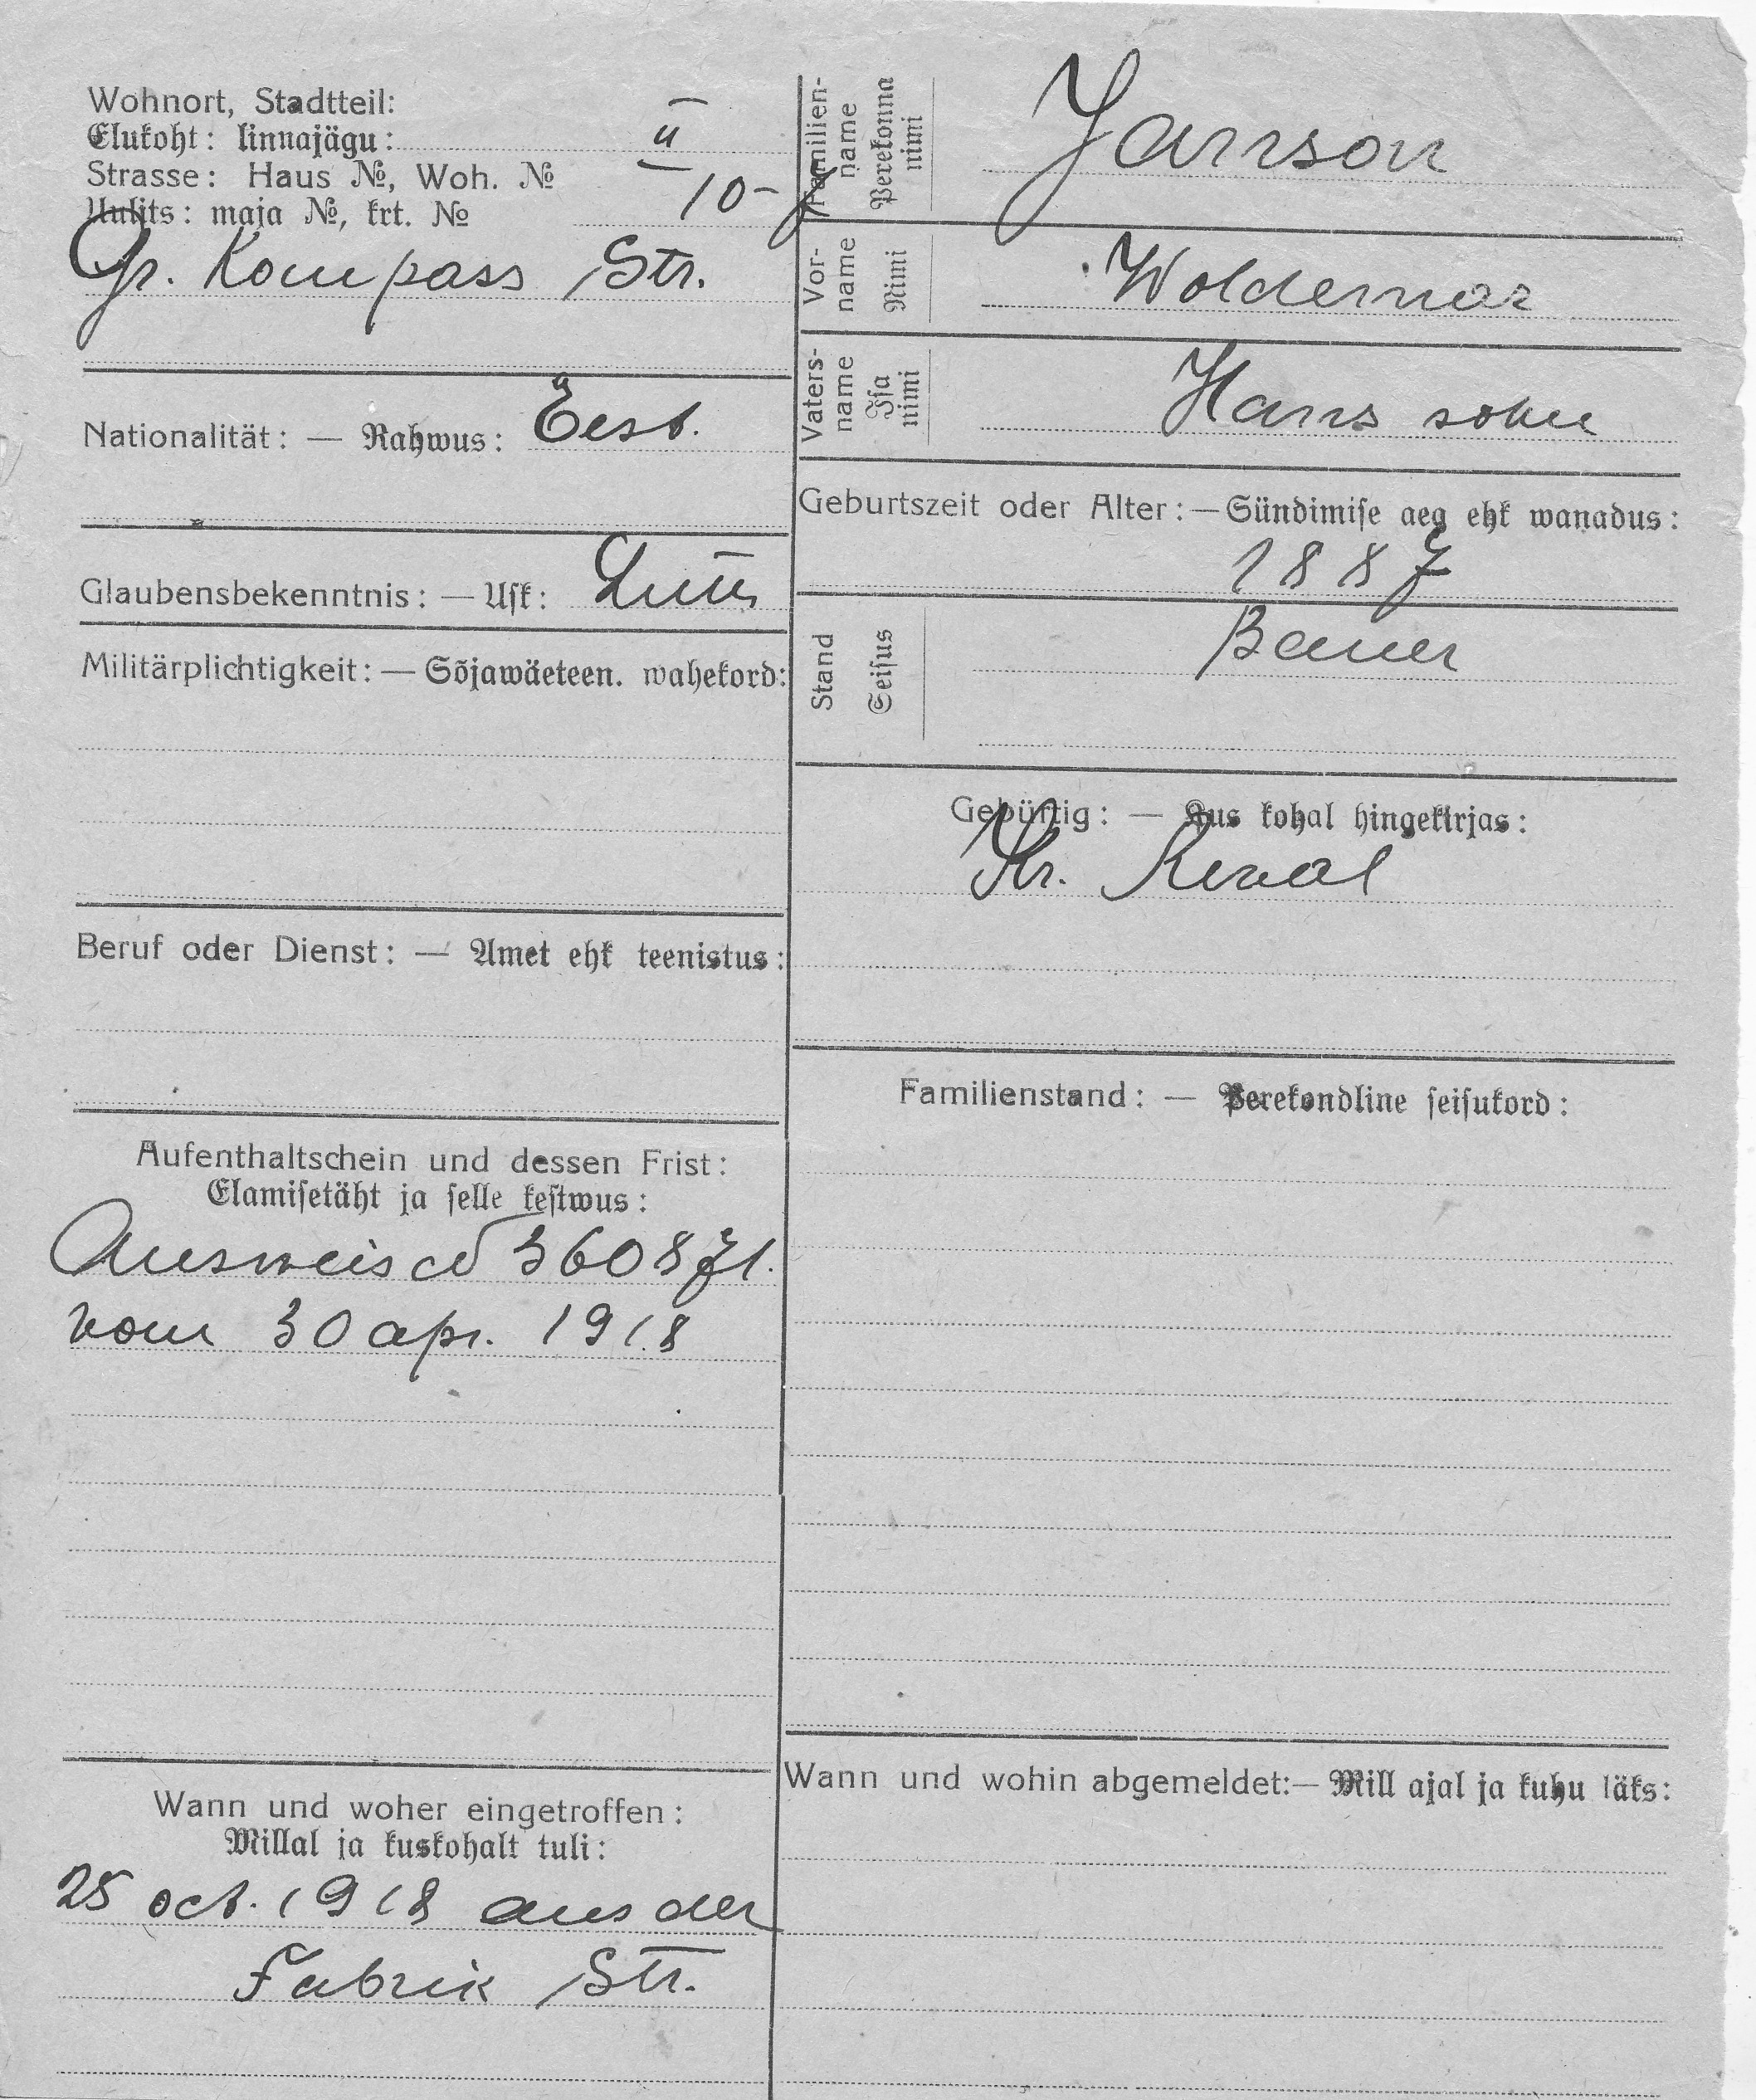 Wohnort, Stadtteil:
Elukoht: linnajägu: II
Strasse: Haus №, Woh. №
Uulits: maja №, krt. № 10-
Gr. Kompass Str.
Nationalität: — Rahwus: Eest.
Glaubensbekenntnis: — Usk: Luth
Militärplichtigkeit: — Sõjawäeteen. wahekord:
Beruf oder Dienst: — Amet ehk teenistus:
Aufenthaltschein und dessen Frist:
Elamisetäht ja selle kestwus:
Ausweis № 360871.
vom 30 apr. 1918
Wann und woher eingetroffen:
Millal ja kuskohalt tuli:
25 oct. 1918 aus der
Fabrik Str.
Familien-
name
Perekonna
nimi
Janson
Vor-
name
Nimi
Woldemar
Vaters-
name
Isa
nimi
Hans sohn
Geburtszeit oder Alter: — Sündimise aeg ehk wanadus:
1887
Stand
Seisus
Bauer
Gebürtig: — Kus kohal hingekirjas:
Kr. Reval
Familienstand: — Perekondline seisukord:
Wann und wohin abgemeldet: — Mill ajal ja kuhu läks: